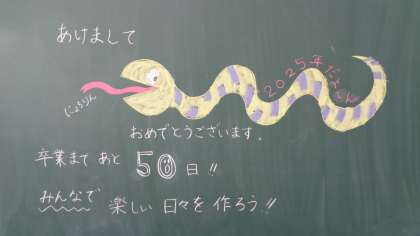 あけまして
2025年だよ
じょろりん
おめでとうございます.
卒業まで あと 50 日!!
みんなで 楽しい 日々を 作ろう!!